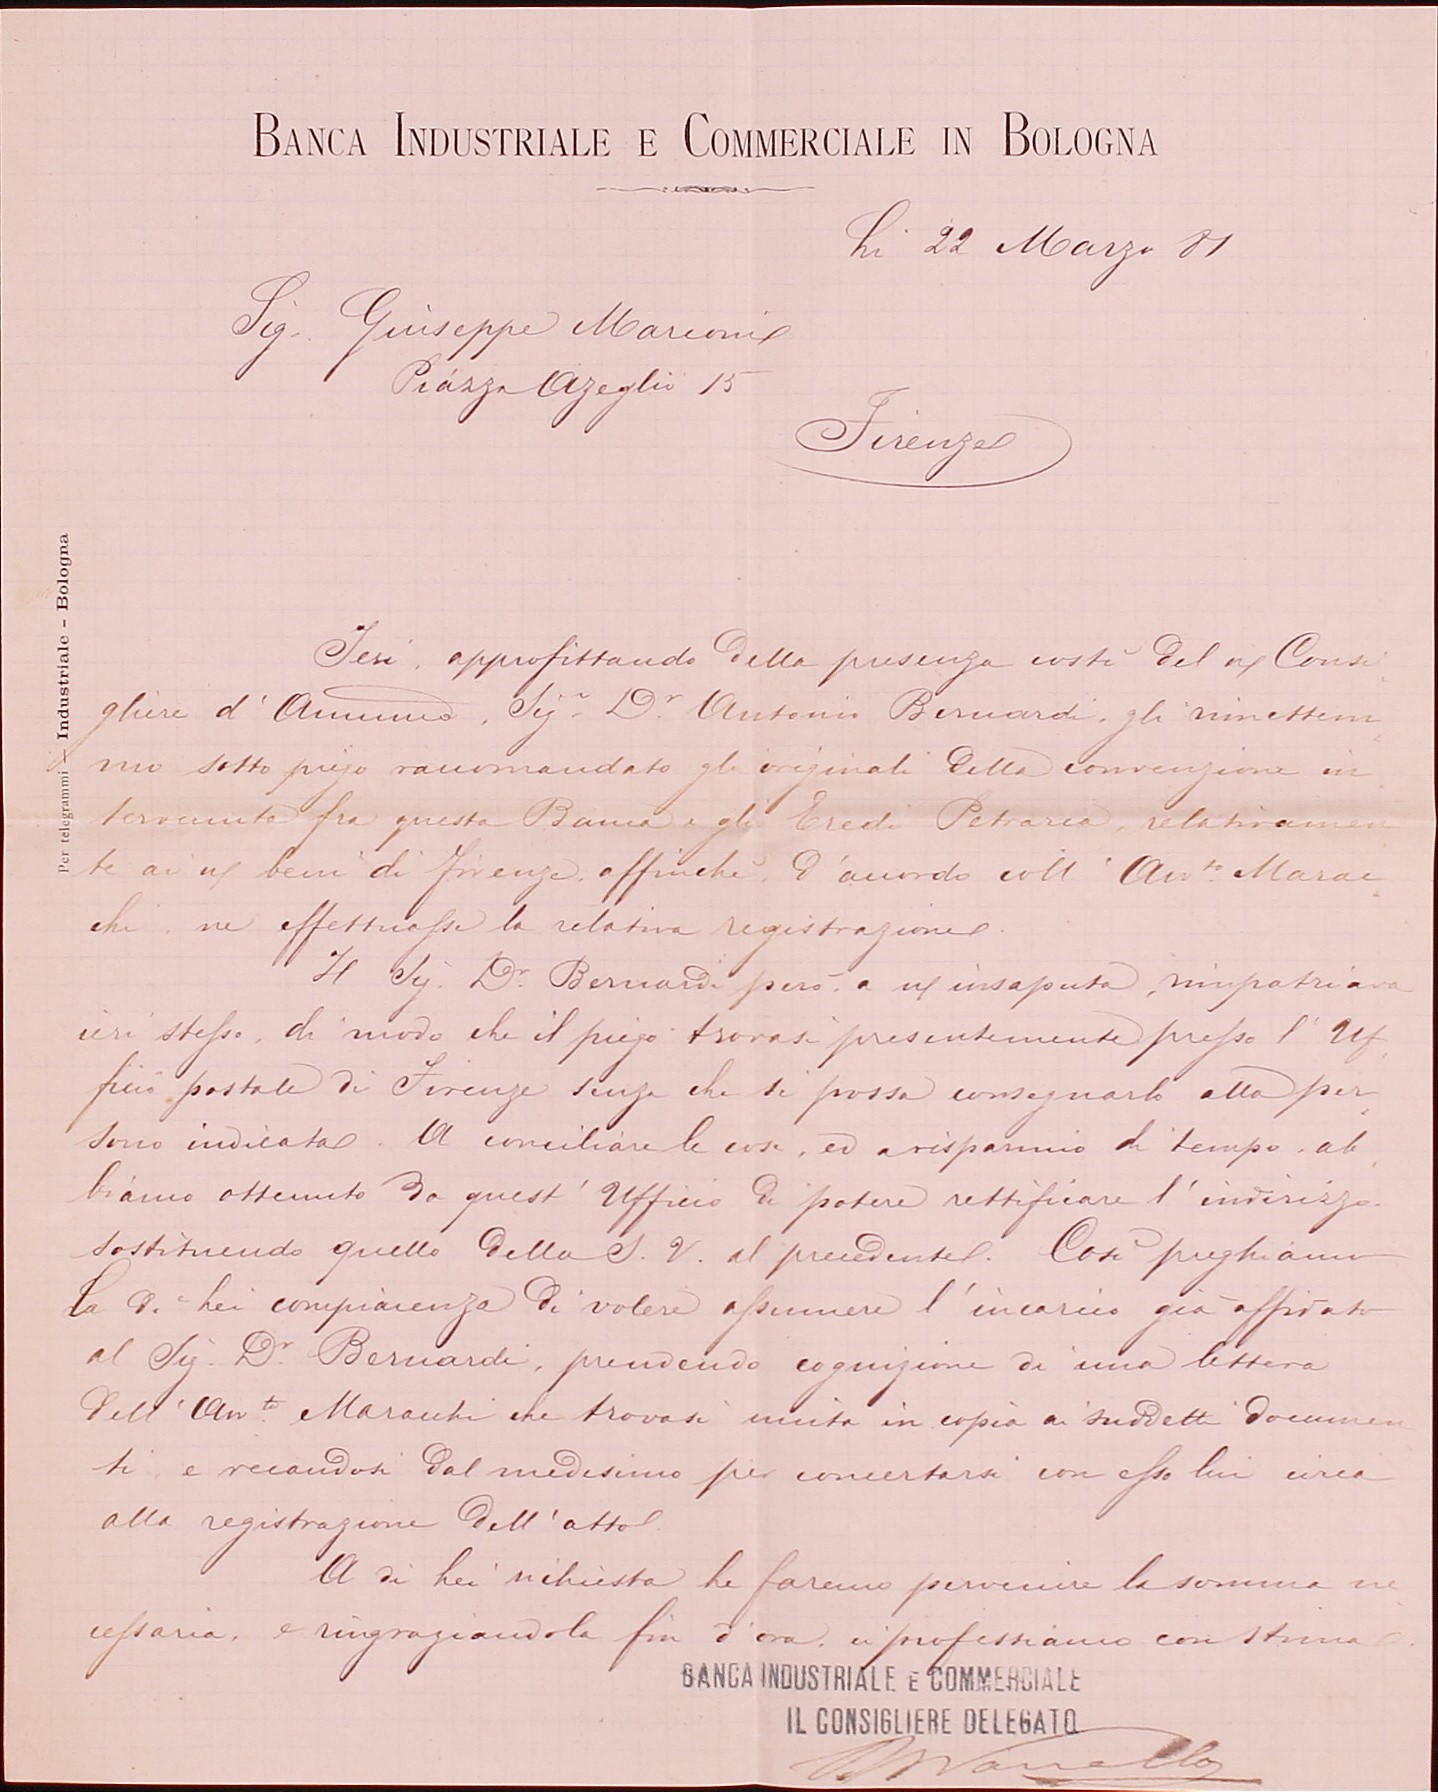 BANCA INDUSTRIALE E COMMERCIALE IN BOLOGNA
Li 22 Marzo 81
Sig. Giuseppe Marconi
Piazza Azeglio 15
Firenze
Per telegrammi - Industriale - Bologna
Ieri, approfittando della presenza costì del Consi
gliere d'Amm.ne, Sig.r D.r Antonio Bernardi, gli rimettem
mo sotto piego raccomandato gli originali della convenzione in
tervenuta fra questa Banca e gli Eredi Petrarca, relativamen
te ai beni di Firenze, affinchè, d'accordo coll'Avv.to Marac
chi, ne effettuasse la relativa registrazione.
Il Sig. D.r Bernardi però, a insaputa, rimpatriava
ieri stesso, di modo che il piego trovasi presentemente presso l'Uf
ficio postale di Firenze senza che si possa consegnarlo alla per
sona indicata. A conciliare le cose, ed a risparmio di tempo, ab
biamo ottenuto da quest'Ufficio di potere rettificare l'indirizzo
sostituendo quello della S. V. al precedente. Così preghiamo
La di Lei compiacenza di volere assumere l'incarico già affidato
al Sig. D.r Bernardi, prendendo cognizione di una lettera
dell'Avv.to Maracchi che trovasi unita in copia ai suddetti documen
ti, e recandosi dal medesimo per concertarsi con esso lui circa
alla registrazione dell'atto.
A di Lei richiesta Le faremo pervenire la somma ne
cessaria, e ringraziandola fin d'ora, ci professiamo con stima
BANCA INDUSTRIALE E COMMERCIALE
IL CONSIGLIERE DELEGATO